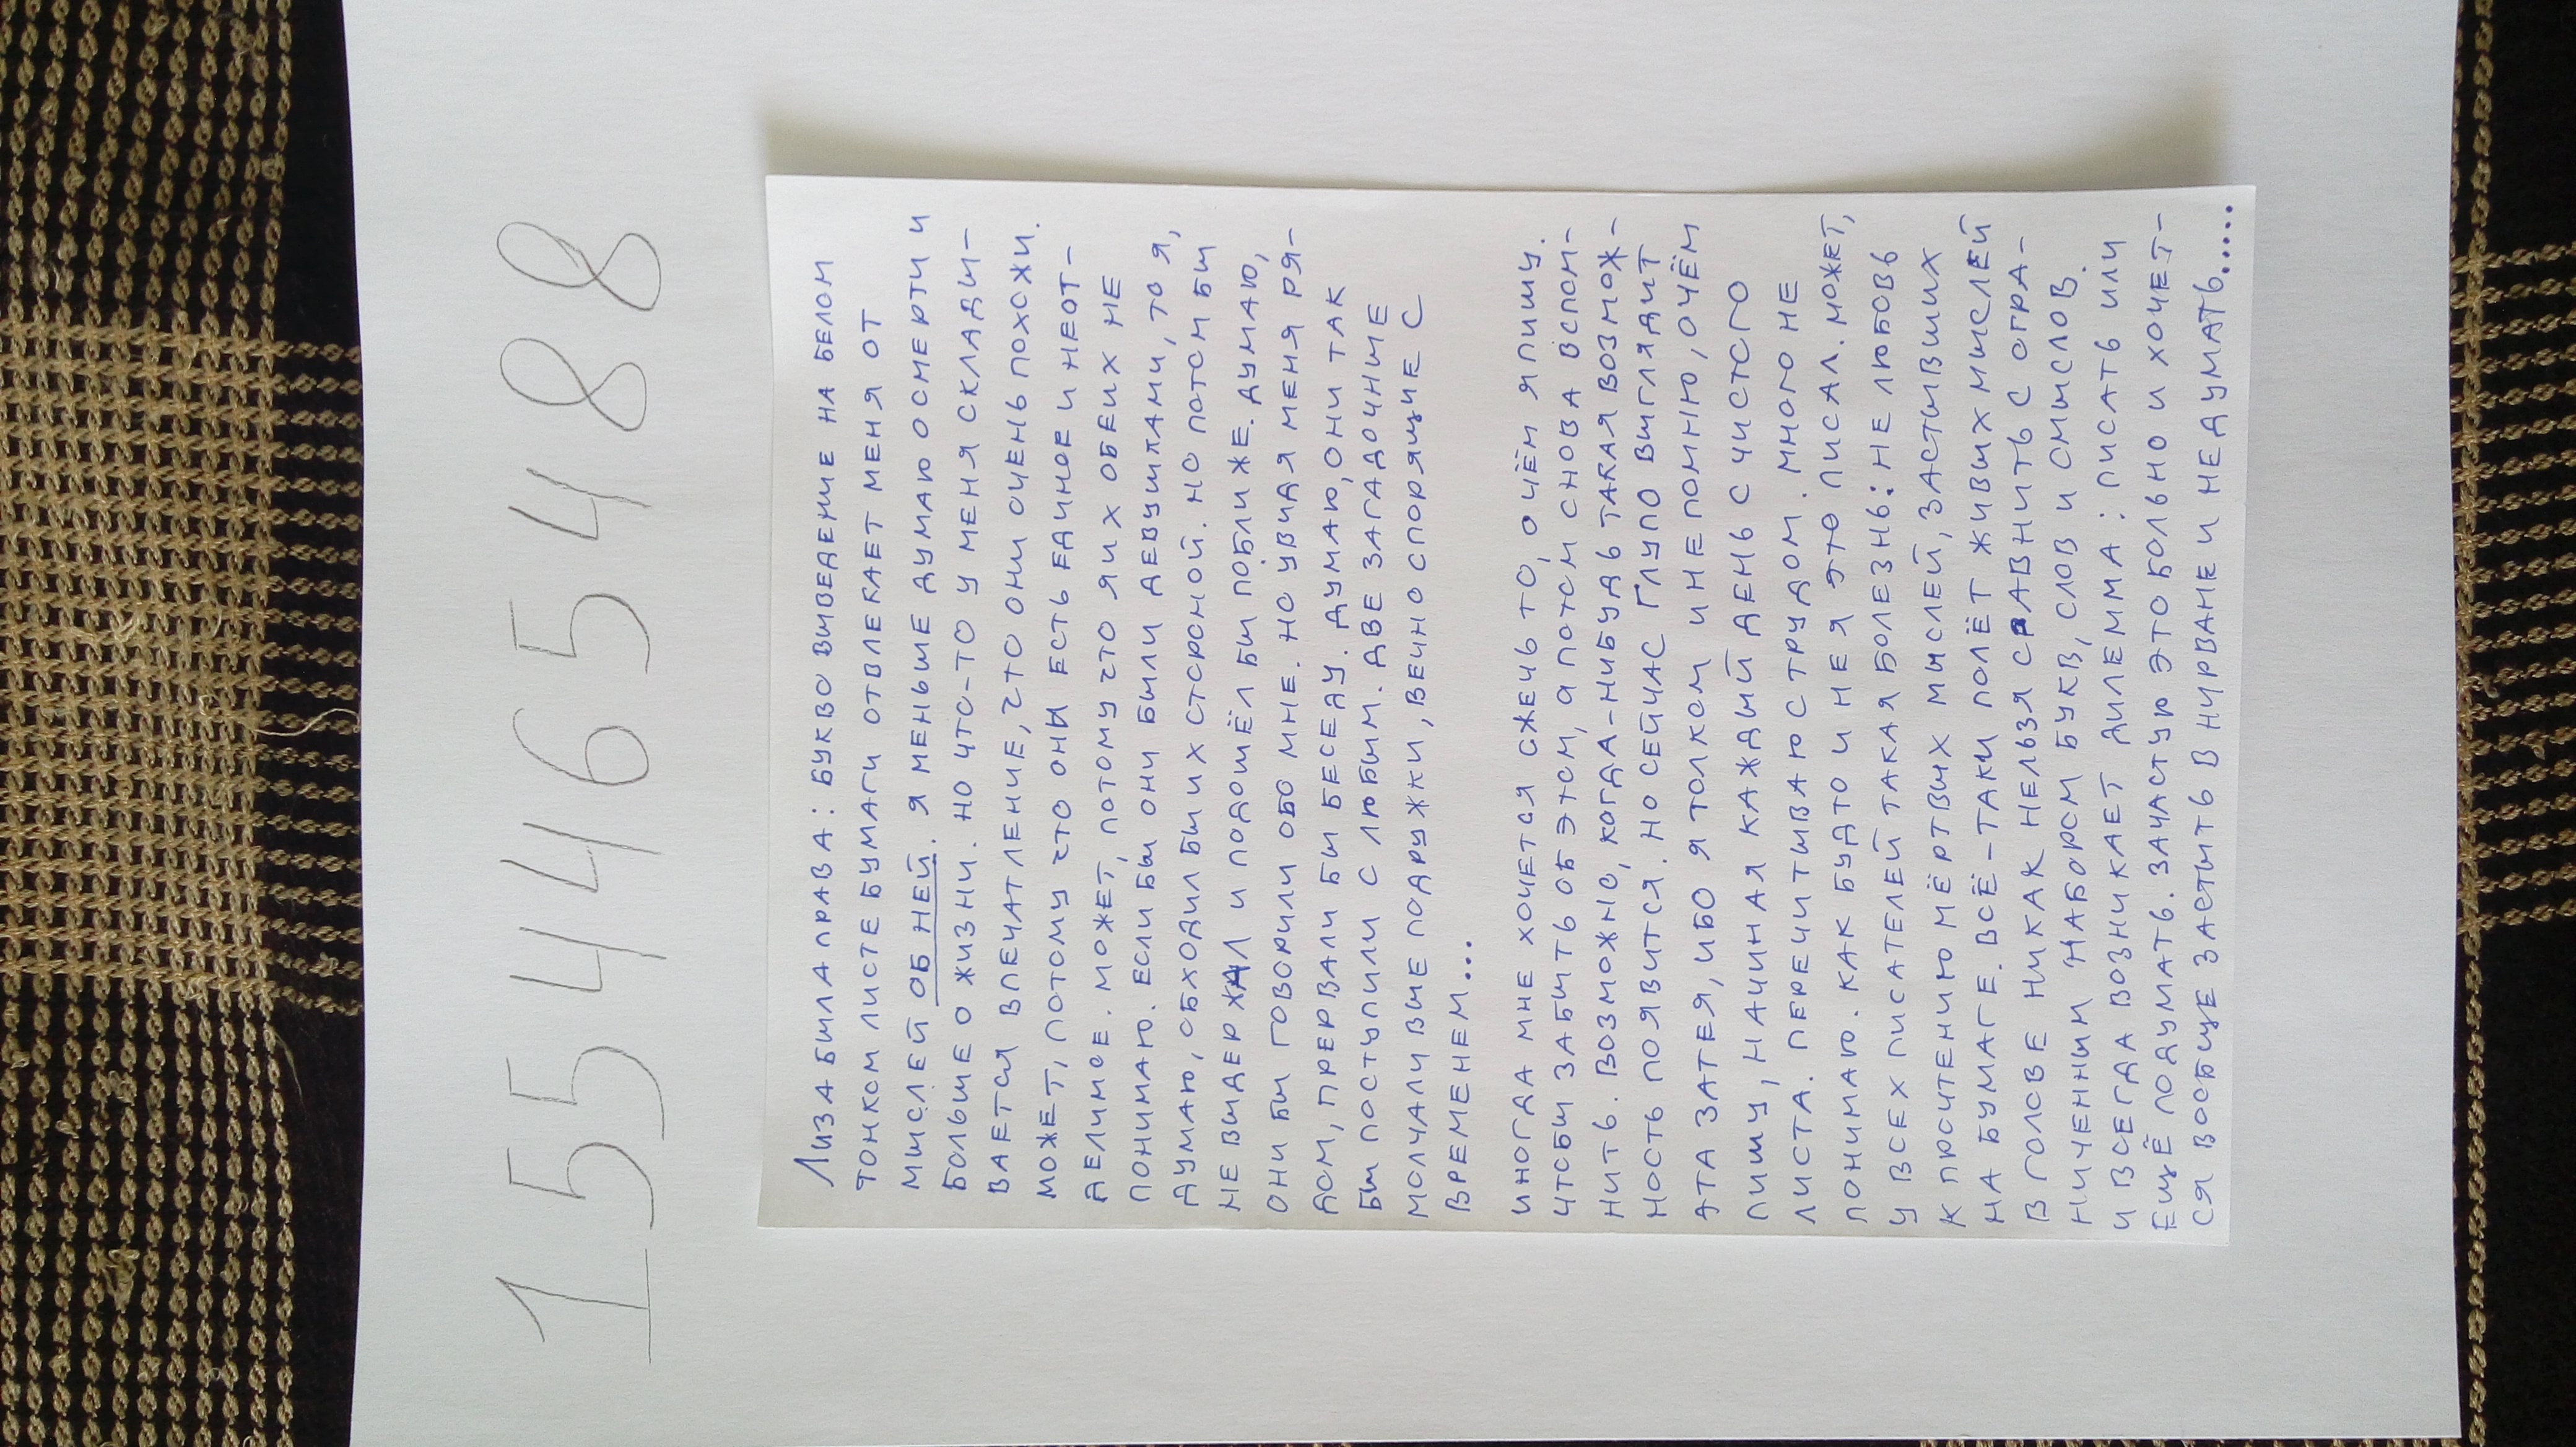 155465488
ЛИЗА БЫЛА ПРАВА: БУКВОВЫВЕДЕНИЕ НА БЕЛОМ
ТОНКОМ ЛИСТЕ БУМАГИ ОТВЛЕКАЕТ МЕНЯ ОТ
МЫСЛЕЙ ОБ НЕЙ. Я МЕНЬШЕ ДУМАЮ О СМЕРТИ И
БОЛЬШЕ О ЖИЗНИ. НО ЧТО-ТО У МЕНЯ СКЛАДЫ-
ВАЕТСЯ ВПЕЧАТЛЕНИЕ, ЧТО ОНИ ОЧЕНЬ ПОХОЖИ.
МОЖЕТ, ПОТОМУ ЧТО ОНИ ЕСТЬ ЕДИНОЕ И НЕОТ-
ДЕЛИМОЕ. МОЖЕТ, ПОТОМУ ЧТО Я ИХ ОБЕИХ НЕ
ПОНИМАЮ. ЕСЛИ БЫ ОНИ БЫЛИ ДЕВУШКАМИ, ТО Я,
ДУМАЮ, ОБХОДИЛ БЫ ИХ СТОРОНОЙ. НО ПОТОМ БЫ
НЕ ВЫДЕРЖАЛ И ПОДОШЁЛ БЫ ПОБЛИЖЕ. ДУМАЮ,
ОНИ БЫ ГОВОРИЛИ ОБО МНЕ. НО УВИДЯ МЕНЯ РЯ-
ДОМ, ПРЕРВАЛИ БЫ БЕСЕДУ. ДУМАЮ, ОНИ ТАК
БЫ ПОСТУПИЛИ С ЛЮБЫМ. ДВЕ ЗАГАДОЧНЫЕ
МОЛЧАЛИВЫЕ ПОДРУЖКИ, ВЕЧНО СПОРЯЩИЕ С
ВРЕМЕНЕМ...
ИНОГДА МНЕ ХОЧЕТСЯ СЖЕЧЬ ТО, О ЧЁМ Я ПИШУ.
ЧТОБЫ ЗАБЫТЬ ОБ ЭТОМ, А ПОТОМ СНОВА ВСПОМ-
НИТЬ. ВОЗМОЖНО, КОГДА-НИБУДЬ ТАКАЯ ВОЗМОЖ-
НОСТЬ ПОЯВИТСЯ. НО СЕЙЧАС ГЛУПО ВЫГЛЯДИТ
ЭТА ЗАТЕЯ, ИБО Я ТОЛКОМ И НЕ ПОМНЮ, О ЧЁМ
ПИШУ, НАЧИНАЯ КАЖДЫЙ ДЕНЬ С ЧИСТОГО
ЛИСТА. ПЕРЕЧИТЫВАЮ С ТРУДОМ. МНОГО НЕ
ПОНИМАЮ. КАК БУДТО И НЕ Я ЭТО ПИСАЛ. МОЖЕТ,
У ВСЕХ ПИСАТЕЛЕЙ ТАКАЯ БОЛЕЗНЬ: НЕ ЛЮБОВЬ
К ПРОЧТЕНИЮ МЁРТВЫХ МЫСЛЕЙ, ЗАСТЫВШИХ
НА БУМАГЕ. ВСЁ-ТАКИ ПОЛЁТ ЖИВЫХ МЫСЛЕЙ
В ГОЛОВЕ НИКАК НЕЛЬЗЯ СРАВНИТЬ С ОГРА-
НИЧЕННЫМ НАБОРОМ БУКВ, СЛОВ И СМЫСЛОВ.
И ВСЕГДА ВОЗНИКАЕТ ДИЛЕММА: ПИСАТЬ ИЛИ
ЕЩЁ ПОДУМАТЬ. ЗАЧАСТУЮ ЭТО БОЛЬНО И ХОЧЕТ-
СЯ ВООБЩЕ ЗАСТЫТЬ В НИРВАНЕ И НЕ ДУМАТЬ.....